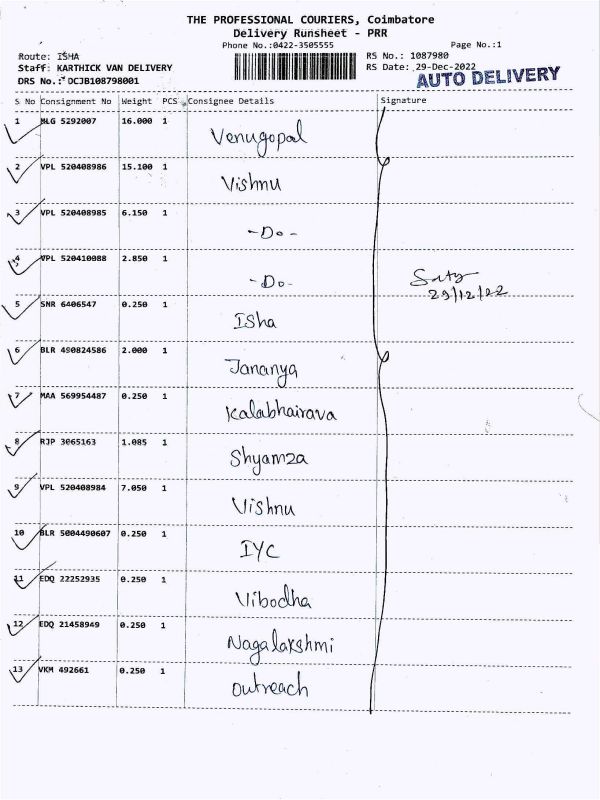 THE PROFESSIONAL COURIERS, Coimbatore
Delivery Runsheet - PRR
Phone No.:0422-3505555 Page No.:1
Route: ISHA RS No.: 1087980
Staff: KARTHICK VAN DELIVERY RS Date: 29-Dec-2022
DRS No.: DCJB108798001 AUTO DELIVERY
S No Consignment No Weight PCS Consignee Details Signature
1 MLG 5292007 16.000 1 Venugopal
2 VPL 520408986 15.100 1 Vishnu
3 VPL 520408985 6.150 1 -Do-
4 VPL 520410088 2.850 1 -Do-
29/12/22
5 SNR 6406547 0.250 1 ISha
6 BLR 490824586 2.000 1 Jananya
7 MAA 569954487 0.250 1 Kalabhairava
8 RJP 3065163 1.085 1 Shyamza
9 VPL 520408984 7.050 1 Vishnu
10 BLR 5004490607 0.250 1 IYC
11 EDQ 22252935 0.250 1 Vibodha
12 EDQ 21458949 0.250 1 Nagalakshmi
13 VKM 492661 0.250 1 Outreach